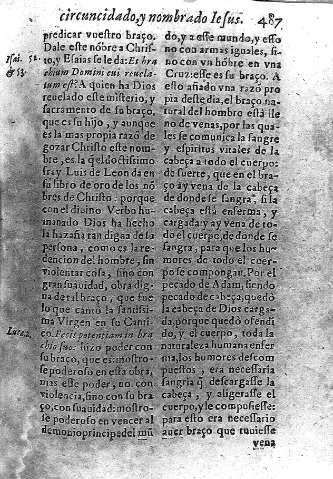 circuncidado, y nombrado Iesus. 487
predicar vuestro braço.
Dale este nõbre a Chris-
to, y Esaias se le da: Et bra
chium Domini cui reuela-
tum est? A quien ha Dios
reuelado este misterio, y
sacramento de su braço,
que es su hijo, y aunque
es la mas propia razõ de
gozar Christo este nom-
bre, es la q̃ el doctissimo
fray Luis de Leon da en
su libro de oro de los nõ
bres de Christo: porque
con el diuino Verbo hu-
manado Dios ha hecho
la hazaña tan digna de su
persona, como es la re-
dencion del hombre, sin
violentar cosa, sino con
gran suauidad, obra dig-
na de tal braço, que fue
lo que cantò la santissi-
ma Virgen en su Canti-
co. Fecit potentiam in bra
chio suo: hizo poder con
su braço, que es: mostro-
se poderoso en esta obra,
mas esse poder, no con
violencia, sino con su bra
ço, con suauidad: mostro-
se poderoso en vencer al
demonio principe del mũ
Isai. 52.
& 53.
Luca. 1.
do, y a este mundo, y esto
no con armas iguales, si-
no con vn hõbre en vna
Cruz: esse es su braço. A
esto añado vna razõ pro
pia deste dia, el braço na-
tural del hombre està lle
no de venas, por las qua-
les se comunica la sangre
y espiritus vitales de la
cabeça a todo el cuerpo:
de suerte, que en el bra-
ço ay vena de la cabeça
donde se sangra, si la
cabeça està enferma, y
cargada: y ay vena de to-
do el cuerpo, de donde se
sangra, para que los hu-
mores de todo el cuer-
po se compongan. Por el
pecado de Adam, siendo
pecado de cabeça, quedò
la cabeça de Dios carga-
da, porque quedò ofendi
do, y el cuerpo, toda la
naturaleza humana enfer
ma, los humores descom
puestos, era necessaria
sangria q̃ descargasse la
cabeça, y aligerasse el
cuerpo, y le compusiesse:
para esto era necessario
auer braço que tuuiesse
vena